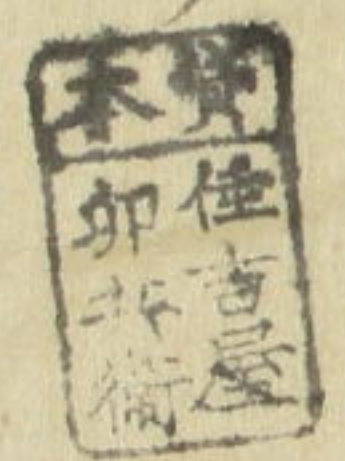 貸本
住吉屋
卯兵衛